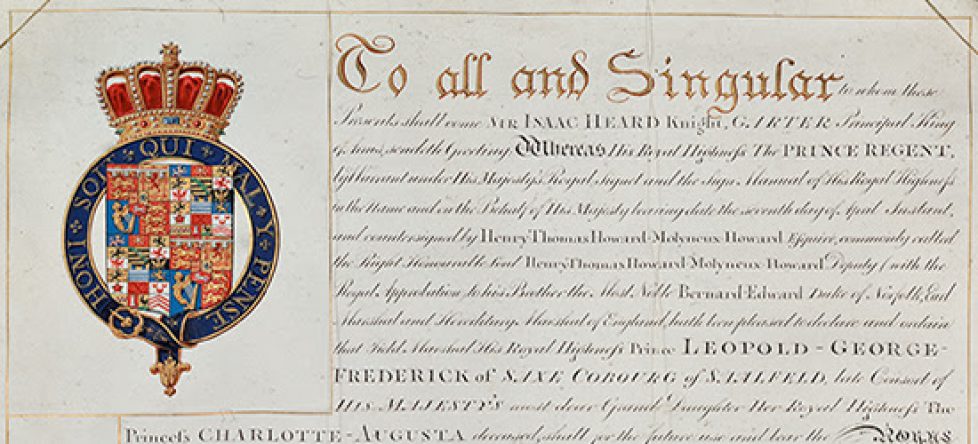 HONI SOIT QUI MAL Y PENSE
To all and Singular to whom these
Presents shall come SIR ISAAC HEARD Knight, GARTER Principal King
of Arms, sendeth Greeting Whereas His Royal Highness The PRINCE REGENT,
by Warrant under His Majesty's Royal Signet and the Sign Manual of His Royal Highness
in the Name and on the Behalf of His Majesty bearing date the seventh day of April Instant,
and countersigned by Henry Thomas Howard-Molyneux-Howard Esquire, commonly called
the Right Honourable Lord Henry Thomas Howard Molyneux-Howard Deputy (with the
Royal Approbation) to his Brother the Most Noble Bernard Edward Duke of Norfolk, Earl
Marshal and Hereditary Marshal of England, hath been pleased to declare and ordain
that Field Marshal His Royal Highness Prince LEOPOLD-GEORGE-
FREDERICK of SAXE COBOURG of SAALFELD, late Consort of
HIS MAJESTY'S most dear Grand Daughter Her Royal Highness The
Princess CHARLOTTE-AUGUSTA deceased, shall for the future use and bear the ROYAL